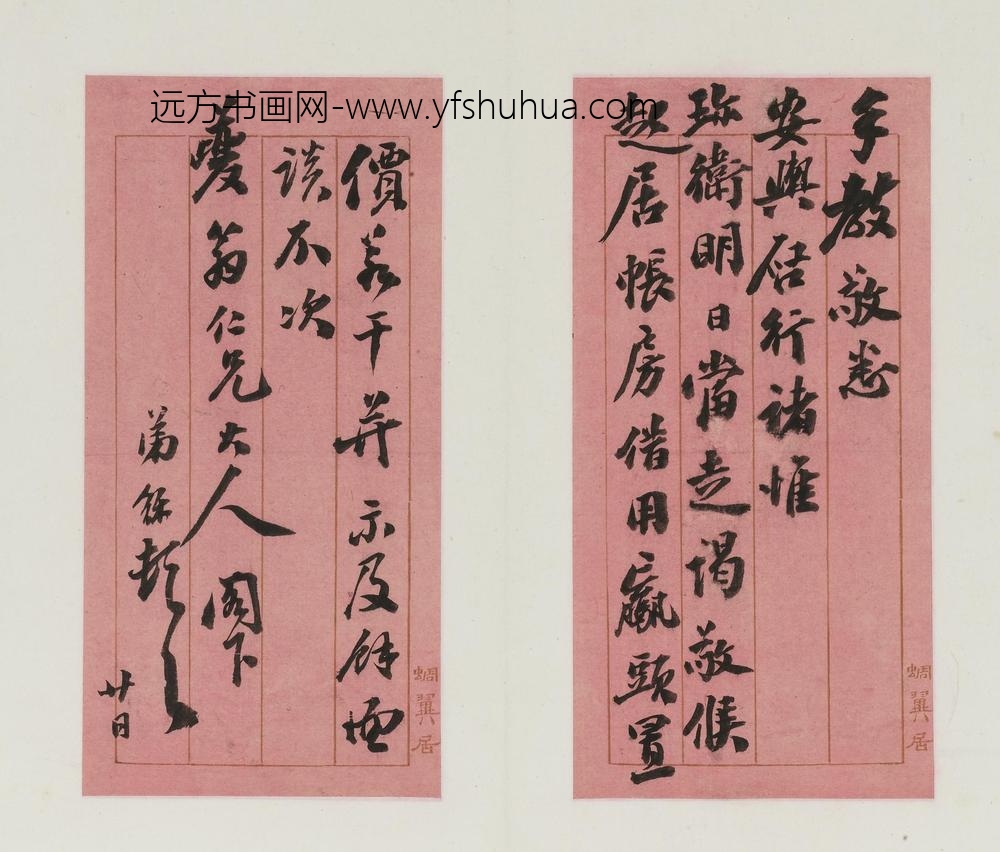 远方书画网-www.yfshuhua.com
手教敬悉
安舆启行诸惟
珍衛明日當走謁敬候
起居帳房借用贏頭置
價若干并示及餘面
談不次
夔翁仁兄大人閣下
弟
廿日
蜩翼居
蜩翼居